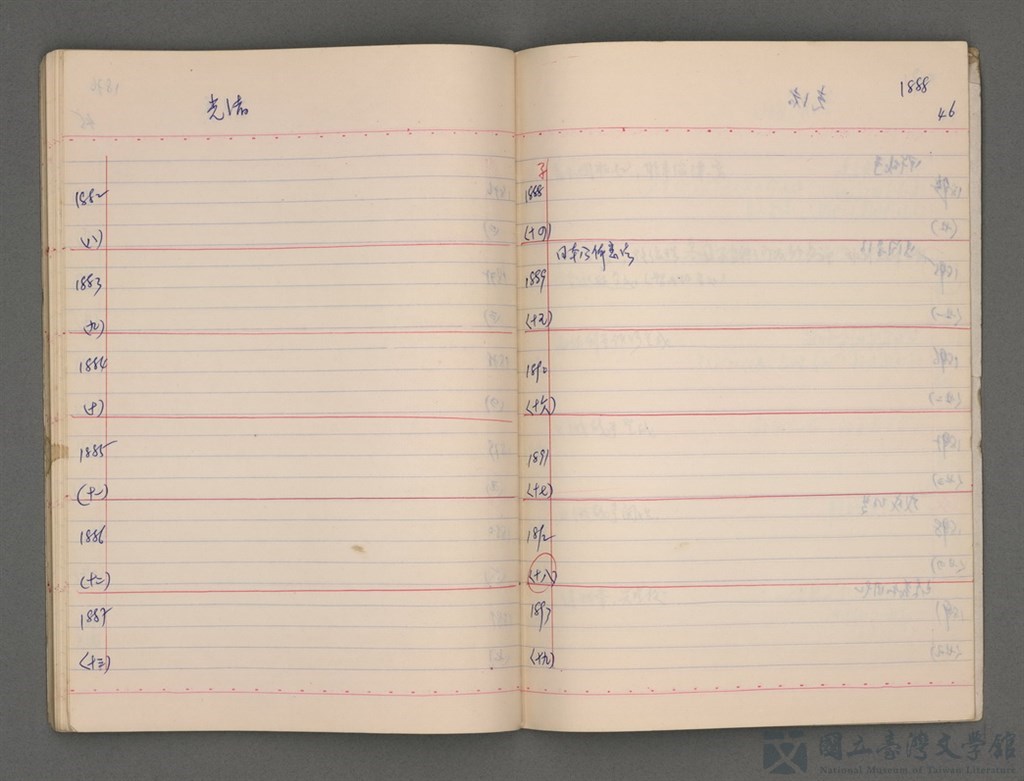 光緒
1882
(八)
1883
(九)
1884
(十)
1885
(十一)
1886
(十二)
1887
(十三)
1888
46
子
1888
(十四)
日本公佈憲法
1889
(十五)
1890
(十六)
1891
(十七)
1892
(十八)
1893
(十九)
國立臺灣文學館
National Museum of Taiwan Literature